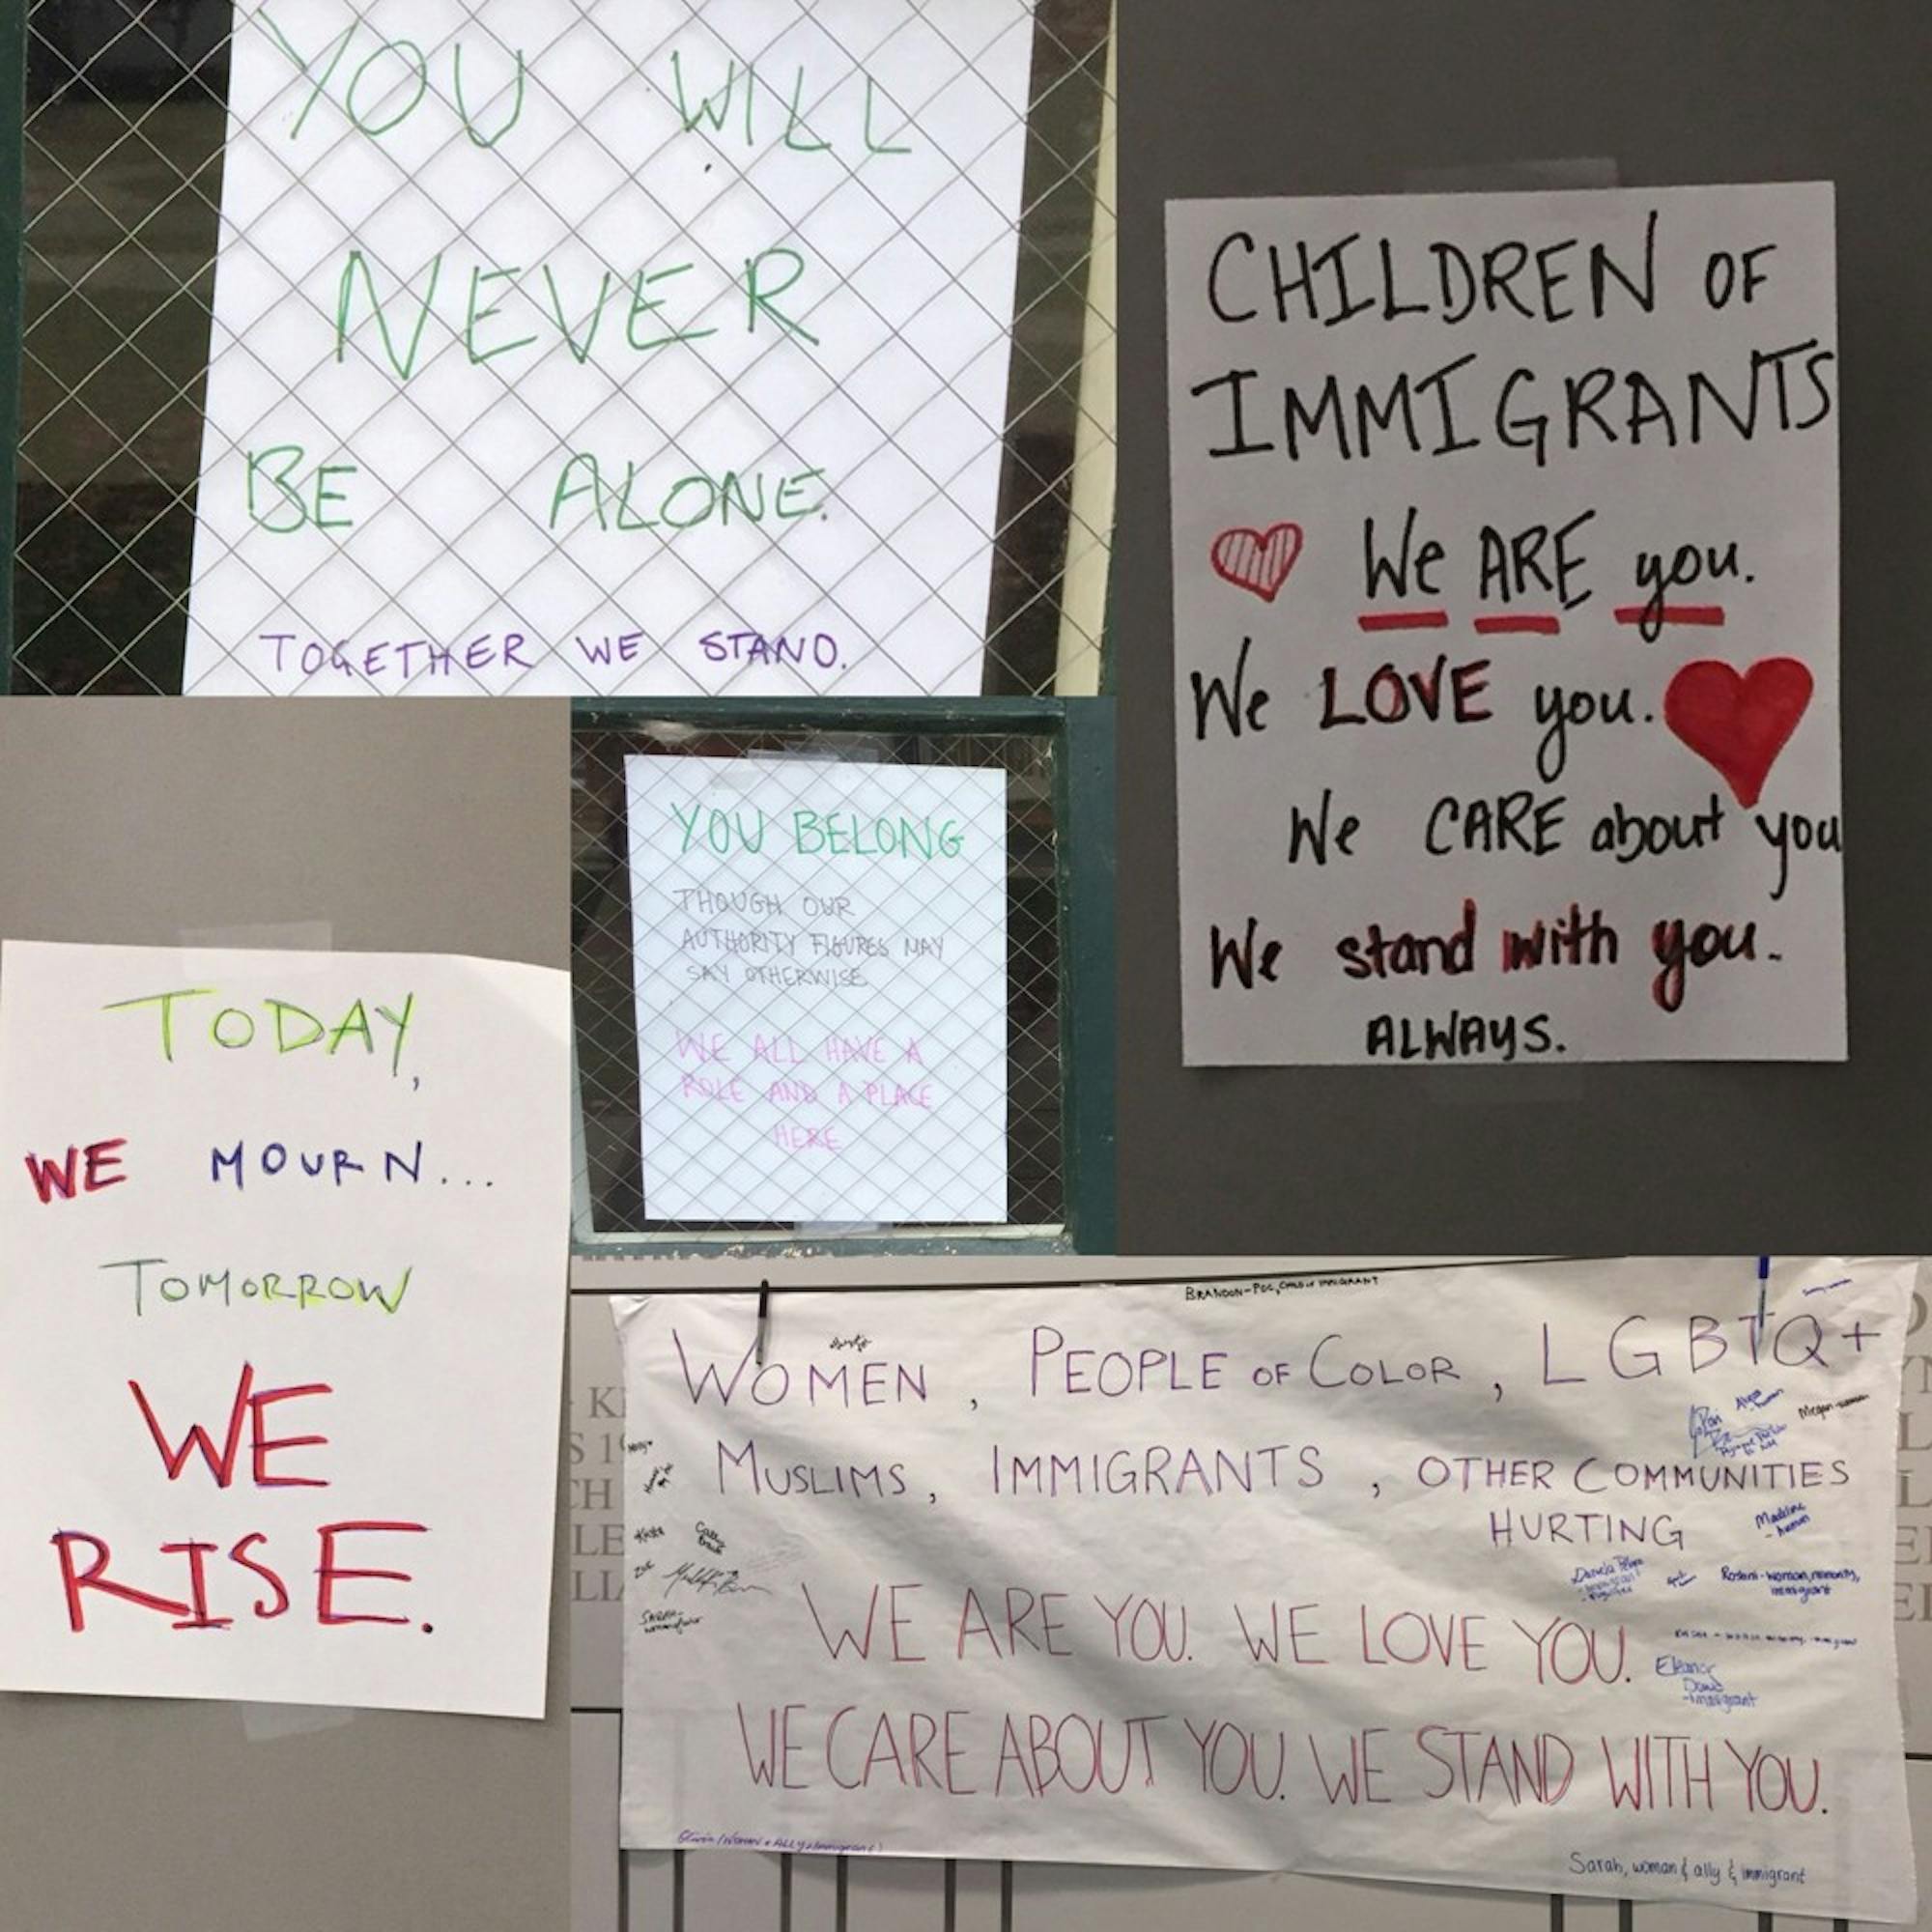 YOU WILL
NEVER
BE ALONE.
TOGETHER WE STAND.
CHILDREN OF
IMMIGRANTS
We ARE you.
We LOVE you.
We CARE about you
We stand with you.
ALWAYS.
TODAY,
WE MOURN...
TOMORROW
WE
RISE.
YOU BELONG
THOUGH OUR
AUTHORITY FIGURES MAY
SAY OTHERWISE
WE ALL HAVE A
ROLE AND A PLACE
HERE
BRANDON-POC, CHILD OF IMMIGRANT
WOMEN, PEOPLE OF COLOR, LGBTQ+
Megan-woman
MUSLIMS, IMMIGRANTS, OTHER COMMUNITIES
HURTING
Madeline
- human
Rosani-woman, minority,
immigrant
WE ARE YOU. WE LOVE YOU.
Eleanor
David
-immigrant
WE CARE ABOUT YOU. WE STAND WITH YOU.
Olivia (WOMAN + ALLY + Immigrant)
Sarah, woman & ally & immigrant